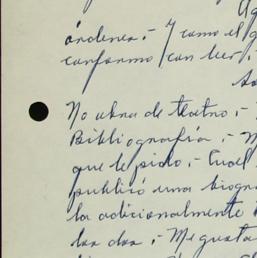 órdenes.- Y como el
conformo con leer.-
No obra de teatro.-
Bibliografía.-
que le pido.- Cual
publicó una biogra
la adicionalmente
las dos.- Me gusta